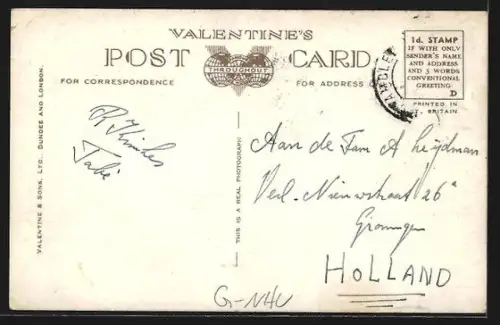 VALENTINE'S
POST CARD
THROUGHOUT
FOR CORRESPONDENCE
FOR ADDRESS
1d. STAMP
IF WITH ONLY
SENDER'S NAME
AND ADDRESS
AND 5 WORDS
CONVENTIONAL
GREETING.
D
PRINTED IN
T. BRITAIN
VALENTINE & SONS, LTD. DUNDEE AND LONDON.
THIS IS A REAL PHOTOGRAPH
Aan de Fam A
Verl. Nieuwstraat 26a
Groningen
HOLLAND